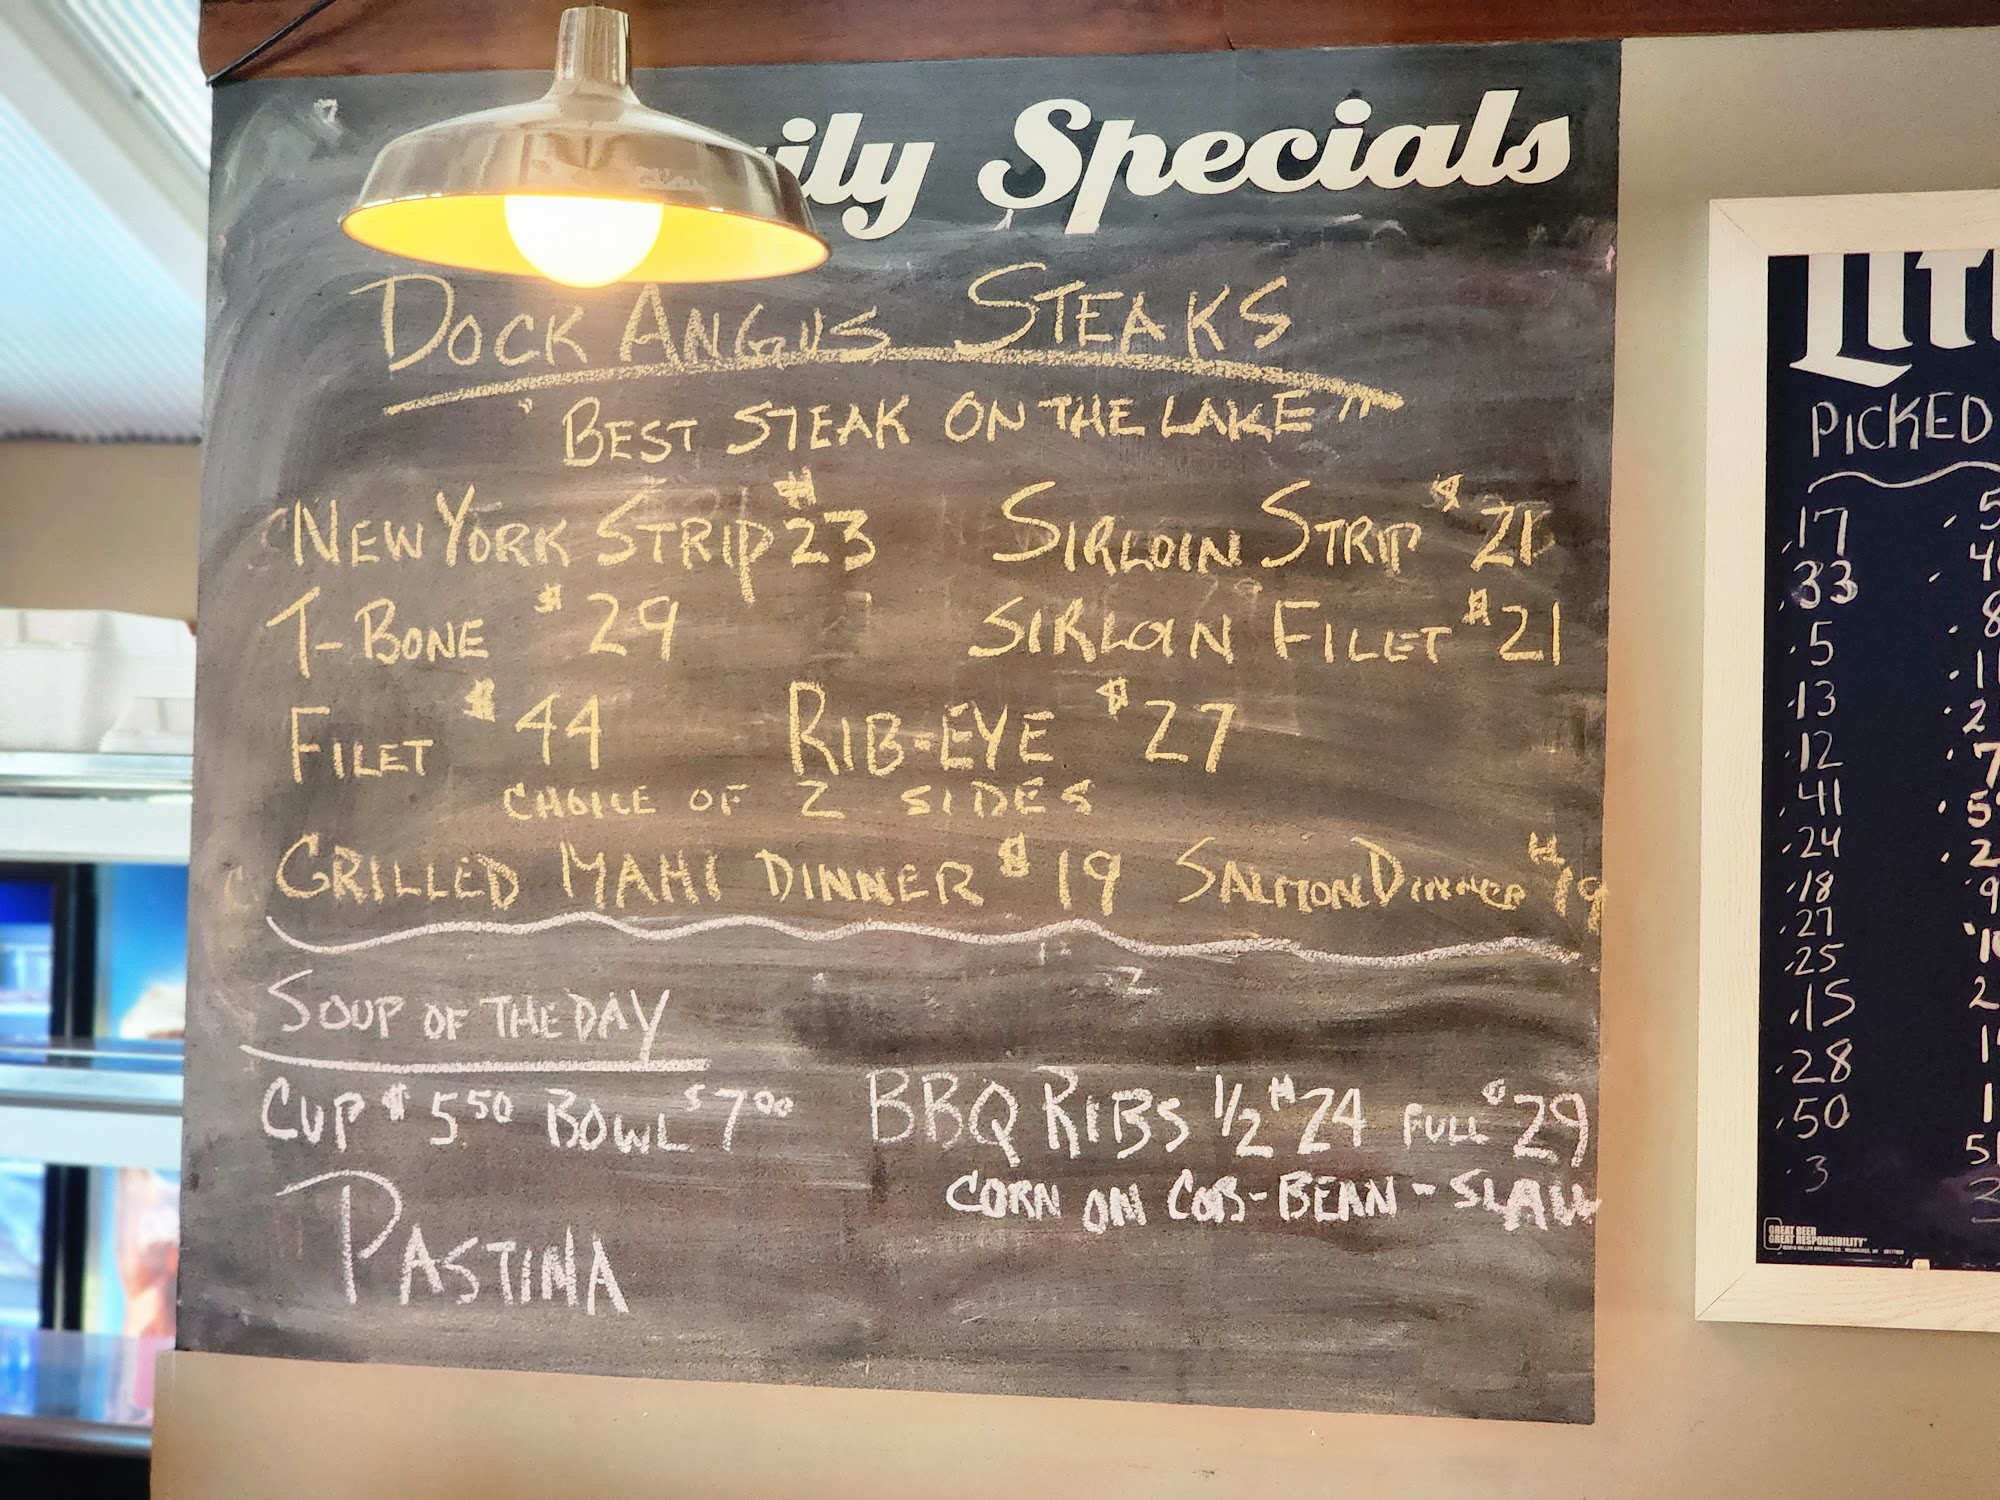 ily Specials
DOCK ANGUS STEAKS
"BEST STEAK ON THE LAKE"
NEW YORK STRIP $23 SIRLOIN STRIP $21
T-BONE $29 SIRLOIN FILET $21
FILET $44 RIB-EYE $27
CHOICE OF 2 SIDES
GRILLED MAHI DINNER $19 SALMON DINNER $19
SOUP OF THE DAY
CUP $5.50 BOWL $7.00
PASTINA
BBQ RIBS 1/2 $24 FULL $29
CORN ON COB-BEAN-SLAW
Lite
PICKED
.17
.33
.5
.13
.12
.41
.24
.18
.27
.25
.15
.28
.50
.3
GREAT BEER
GREAT RESPONSIBILITY